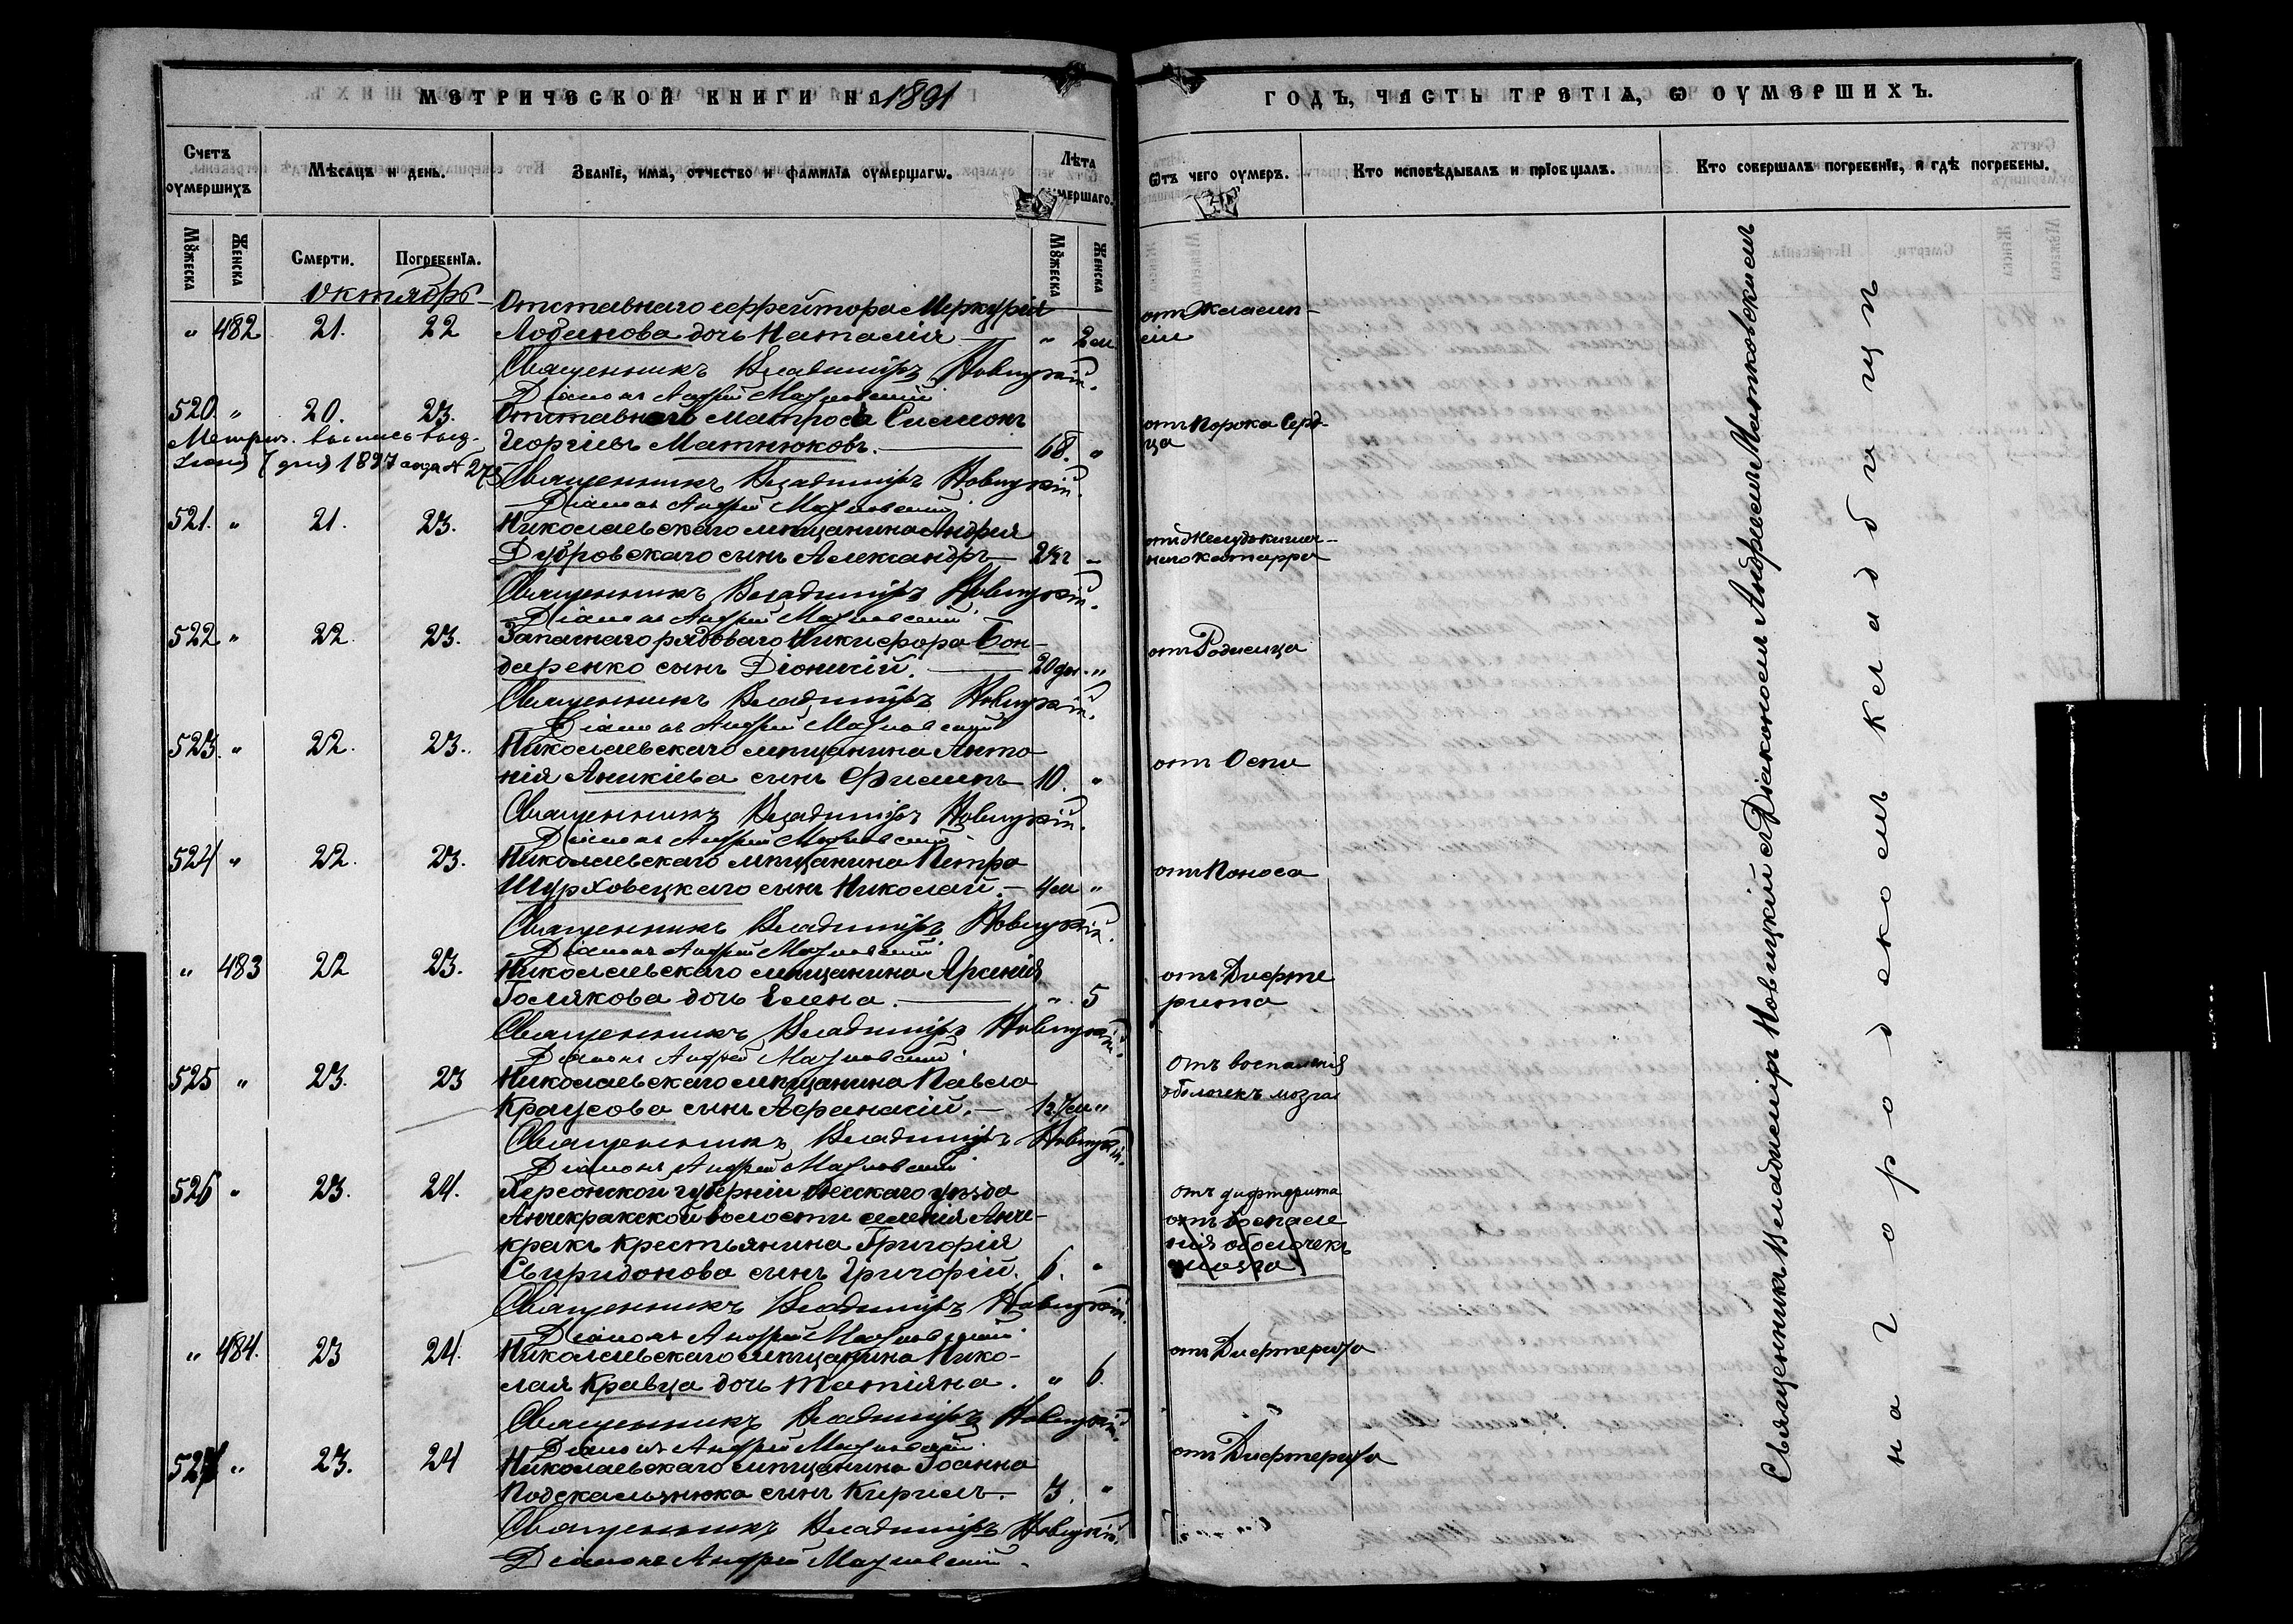 МЕТРИЧЕСКОЙ КНИГИ НА 1891
ГОДЪ, ЧАСТЬ ТРЕТІѦ, Ѡ ОУМЕРШИХЪ.
Счетъ оумершихъ
Мѣсяцъ и день.
Званїе, имѧ, отчество и фамилїѧ оумершагѡ.
Лѣта оумершаго.
Ѿтъ чего оумеръ.
Кто исповѣдывалъ и прїобщалъ.
Кто совершалъ погребенїе, и гдѣ погребены.
Мꙋжеска
Женска
Смерти.
Погребенїѧ.
Мꙋжеска
Женска
Октябрь
Отставнаго ефрейтора Меркурія
" 482 21. 22 Лобанова дочь Наталія — " 2 м
Священникъ Владиміръ Новицкій.
Діаконъ Андрей
520 " 20. 23. Отставной матросъ Симеонъ
Георгіевъ Матнюковъ. — 68. "
Метрич. выпись выд.
7 дня 1897 года №
отъ порока серд-
ца
Священникъ Владиміръ Новицкій.
Діаконъ Андрей
521. " 21. 23. Николаевскаго мѣщанина Андрея
Дубровскаго сынъ Александръ — "
отъ желудочнаго катарра
Священникъ Владиміръ Новицкій.
Діаконъ Андрей
522 " 22 23. Запаснаго рядоваго Никифора Бон-
даренко сынъ Діонисій. — 20 дн. "
отъ Родимца
Священникъ Владиміръ Новицкій.
Діаконъ Андрей
523. " 22. 23. Николаевскаго мѣщанина Анто-
нія Аникіева сынъ Филиппъ 10. "
отъ Оспы
Священникъ Владиміръ Новицкій.
Діаконъ Андрей
524 " 22. 23. Николаевскаго мѣщанина Петра
Шурховецкаго сынъ Николай. — 4 м "
отъ Поноса
Священникъ Владиміръ Новицкій.
Діаконъ Андрей
" 483 22 23. Николаевскаго мѣщанина Арсенія
Голякова дочь Елена. — " 5
отъ Дифте
рита
Священникъ Владиміръ Новицкій.
Діаконъ Андрей
525 " 23. 23 Николаевскаго мѣщанина Павла
Краусова сынъ Афанасій. — "
отъ воспаленія
оболочекъ мозга
Священникъ Владиміръ Новицкій.
Діаконъ Андрей
526 " 23. 24. Херсонской губерніи Одесскаго уѣзда
Анчекракской волости селенія Анче-
кракъ крестьянина Григорія
Свиридонова сынъ Григорій. 6. "
отъ дифтерита
отъ воспале
нія оболочекъ
мозга
Священникъ Владиміръ Новицкій.
Діаконъ Андрей
" 484. 23 24. Николаевскаго мѣщанина Нико-
лая Кравца дочь Татіяна. " 6.
отъ Дифтерита
Священникъ Владиміръ Новицкій.
Діаконъ Андрей
527 " 23. 24 Николаевскаго мѣщанина Іоанна
Подскальнюка сынъ Кириллъ. 3. "
отъ Дифтерита
Священникъ Владиміръ Новицкій.
Діаконъ Андрей
Священникъ Владиміръ Новицкій съ Діакономъ Андреемъ Матковскимъ
на городскомъ кладбищѣ